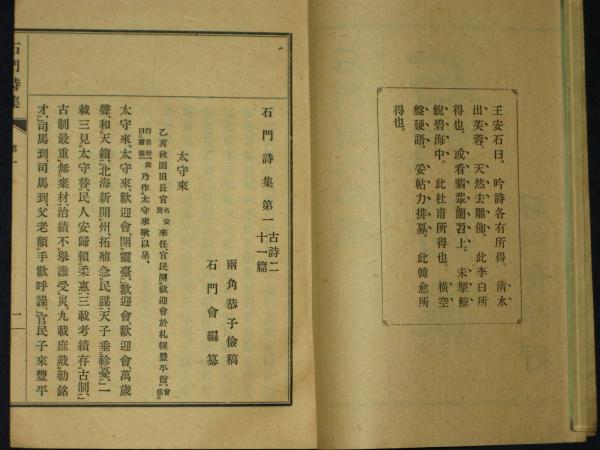 王安石曰。吟詩各有所得。淸水
出芙蓉。天然去雕飾。此李白所
得也。或看翡翠蘭苕上。未掣鯨
鯢碧海中。此杜甫所得也。橫空
盤硬語。妥帖力排奡。此韓愈所
得也。
石門詩集第一 古詩二十一篇
兩角恭子儉稿
石門會編纂
太守來
乙亥秋園田長官 名安賢 來任官民開歡迎會於札幌豐平館、
乃作太守來歌以呈、
太守來、太守來、歡迎會、開靈臺、歡迎會、歡迎會、萬歲
聲和天籟、北海新開州、拓殖急民謨、天子垂軫憂、一
載三見太守替、民人安歸賴、柔惠三載考績存古制、
古制最重無棄材、治績不擧誰受災、九載庶戴勒銘
才、司馬到、司馬到、父老額手歡呼譟、官民子來豐平
石門詩集
第一
一